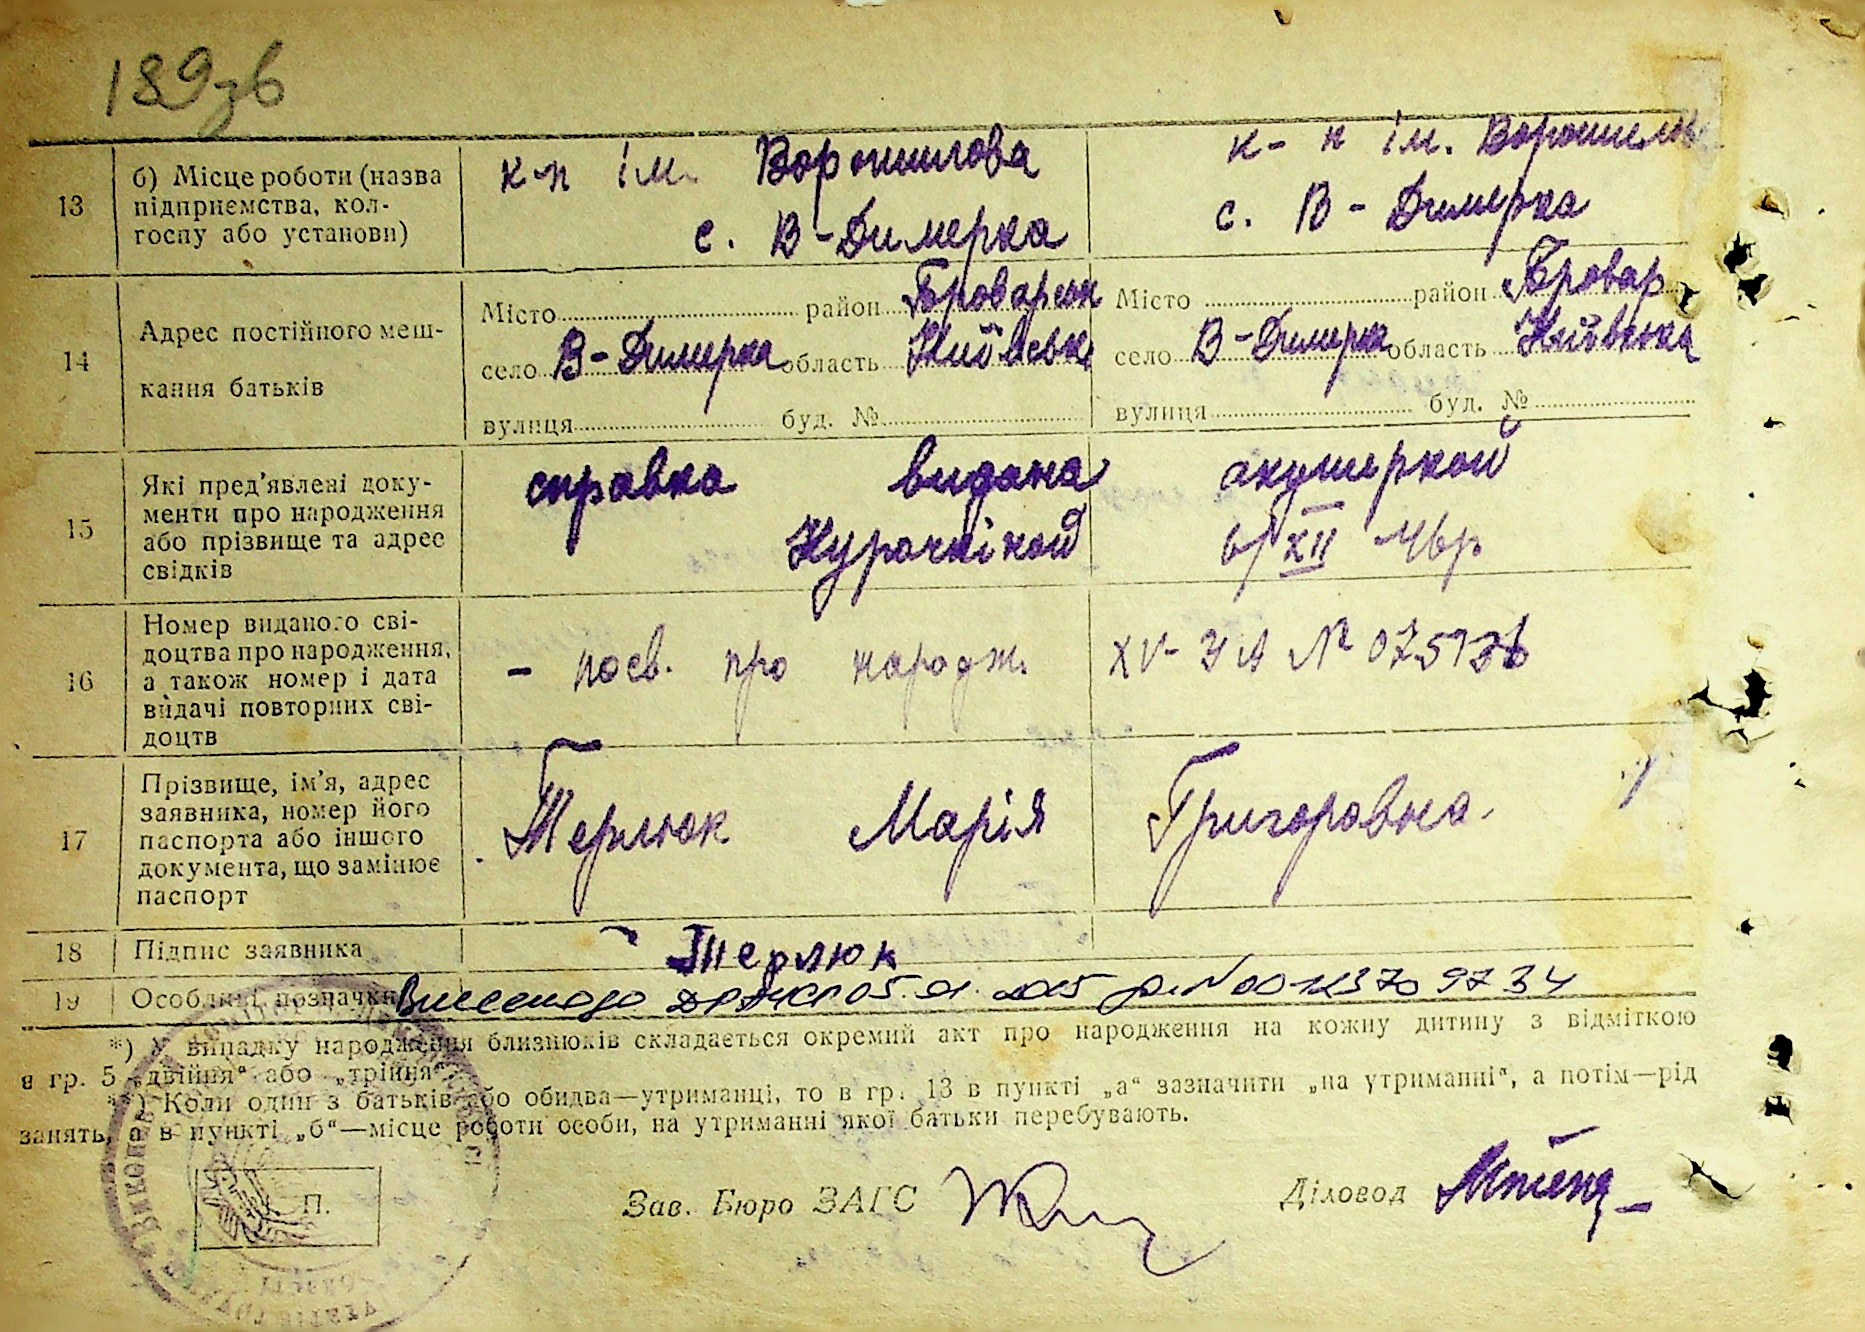 189зв
13 б) Місце роботи (назва підприємства, колгоспу або установи) к-п ім. Ворошилова с. В-Димерка к-п ім. Ворошилов с. В-Димерка
14 Адрес постійного мешкання батьків
Місто район Броварськ Місто район Бровар
село В-Димерка область Київськ село В-Димерка область Київська
вулиця буд. № вулиця буд. №
15 Які пред'явлені документи про народження або прізвище та адрес свідків
справка видана акушеркой
Курочкіной 6/XII 4вр
16 Номер виданого свідоцтва про народження, а також номер і дата видачі повторних свідоцтв
- посв. про народж. XV-УА № 075136
17 Прізвище, ім'я, адрес заявника, номер його паспорта або іншого документа, що замінює паспорт
Терлюк Марія Григоровна.
18 Підпис заявника Терлюк
19 Особливі позначки Внесено до ДРАЦС 05.01.2015 р. № 00123709734
*) У випадку народження близнюків складається окремий акт про народження на кожну дитину з відміткою
в гр. 5 „двійня“ або „трійня“.
**) Коли один з батьків або обидва—утриманці, то в гр. 13 в пункті „а“ зазначити „на утриманні“, а потім—рід
занять, а в пункті „б“—місце роботи особи, на утриманні якої батьки перебувають.
П.
Зав. Бюро ЗАГС
Діловод